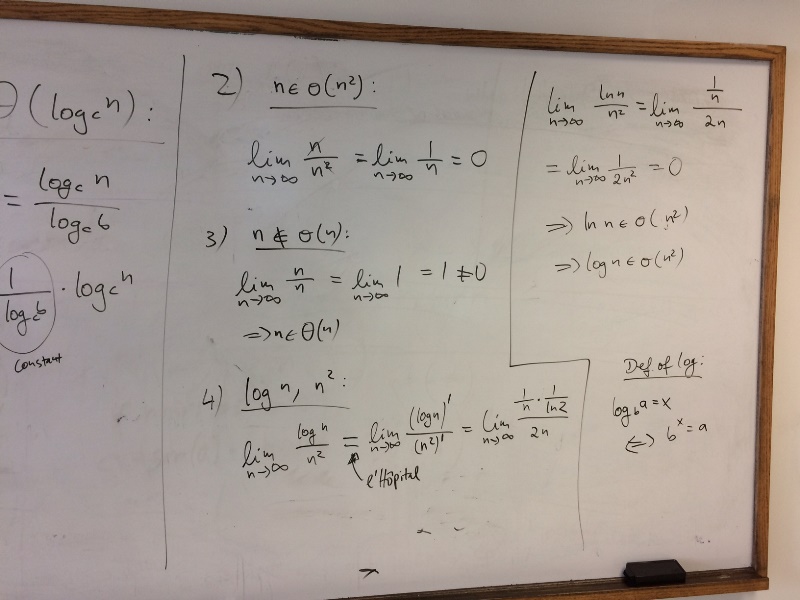 Θ(log_c n):
= log_c n / log_c b
1 / log_c b · log_c n
constant
2) n ∈ o(n²):
lim n→∞ n/n² = lim n→∞ 1/n = 0
3) n ∉ o(n):
lim n→∞ n/n = lim n→∞ 1 = 1 ≠ 0
⇒ n ∈ Θ(n)
4) log n, n²:
lim n→∞ log n / n² = lim n→∞ (log n)' / (n²)' = lim n→∞ (1/n · 1/ln2) / 2n
l'Hôpital
lim n→∞ ln n / n² = lim n→∞ (1/n) / 2n
= lim n→∞ 1/2n² = 0
⇒ ln n ∈ o(n²)
⇒ log n ∈ o(n²)
Def of log:
log_b a = x
⇔ b^x = a